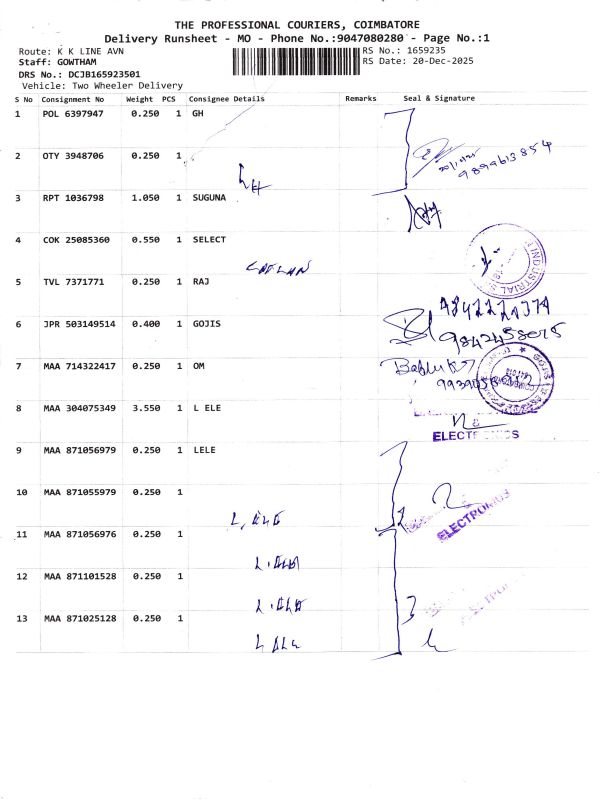 THE PROFESSIONAL COURIERS, COIMBATORE
Delivery Runsheet - MO - Phone No.:9047080280 - Page No.:1
Route: K K LINE AVN
RS No.: 1659235
Staff: GOWTHAM
RS Date: 20-Dec-2025
DRS No.: DCJB165923501
Vehicle: Two Wheeler Delivery
S No Consignment No Weight PCS Consignee Details Remarks Seal & Signature
1 POL 6397947 0.250 1 GH
2 OTY 3948706 0.250 1
9899613854
3 RPT 1036798 1.050 1 SUGUNA
4 COK 25085360 0.550 1 SELECT
INDUSTRIAL
5 TVL 7371771 0.250 1 RAJ
6 JPR 503149514 0.400 1 GOJIS
9842458075
7 MAA 714322417 0.250 1 OM
8 MAA 304075349 3.550 1 L ELE
ELECTRONICS
9 MAA 871056979 0.250 1 LELE
10 MAA 871055979 0.250 1
L. ELE
ELECTRONICS
11 MAA 871056976 0.250 1
L. ELE
12 MAA 871101528 0.250 1
L. ELE
3
13 MAA 871025128 0.250 1
L ELE